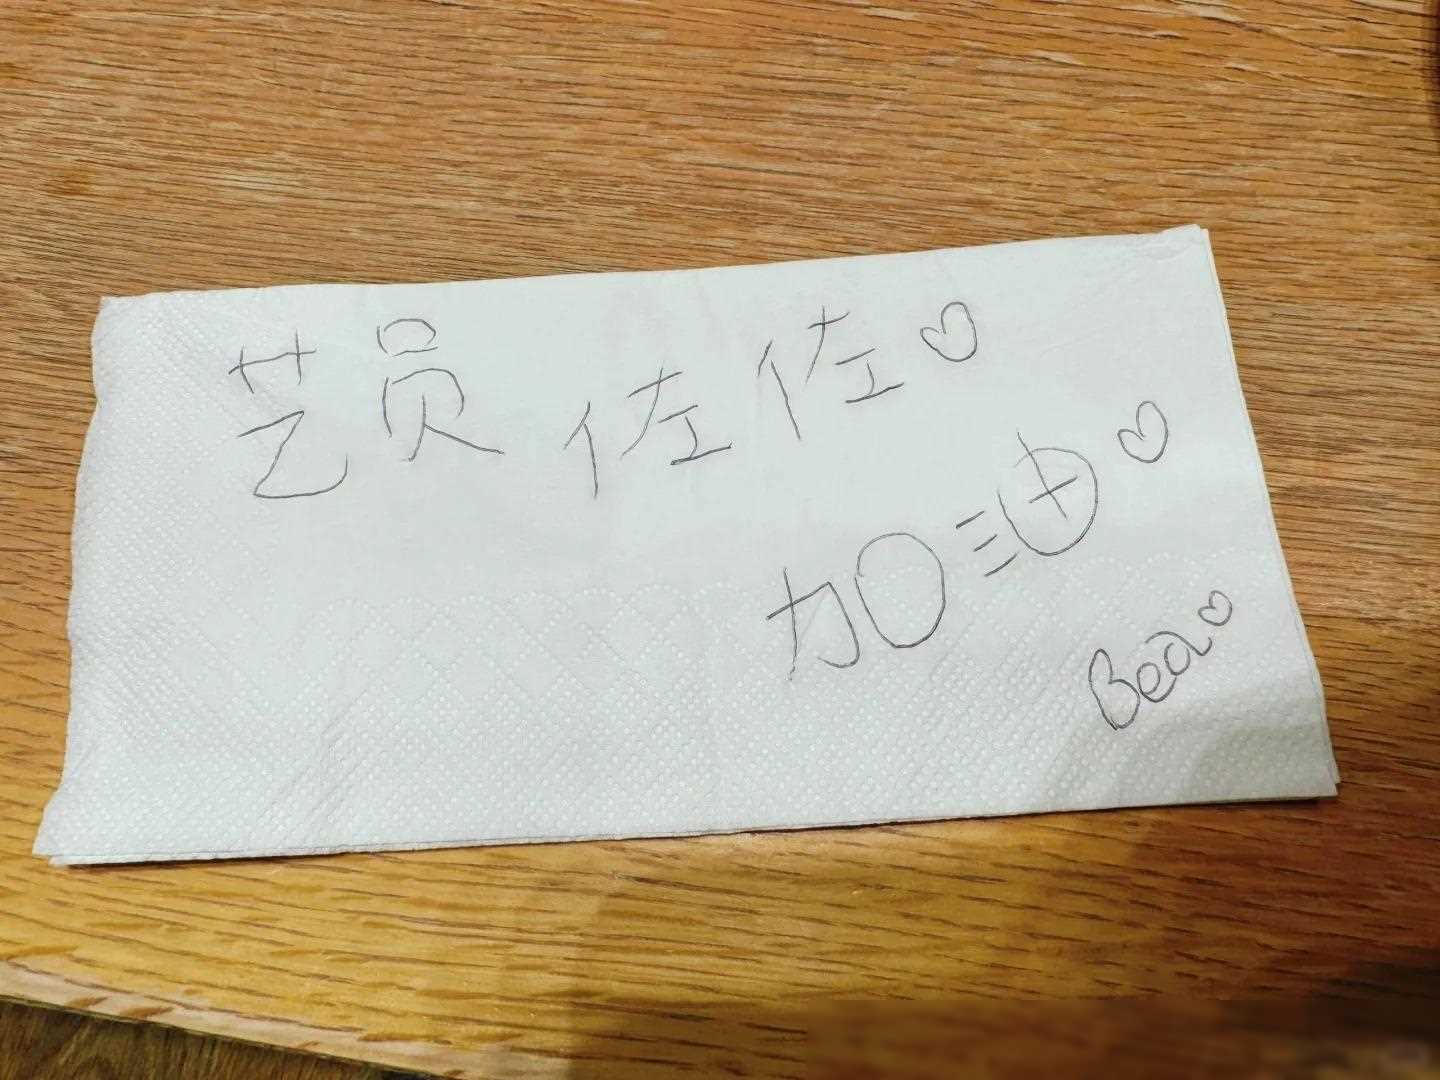 艺员佐佐♡
加油♡
Bea♡